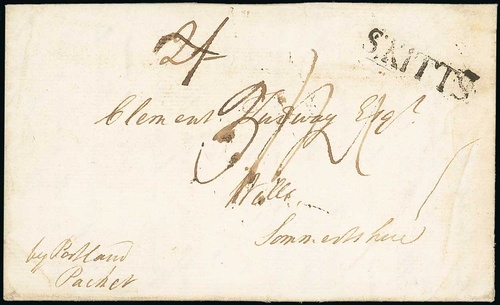 2/
S.KITTS
Clement Tudway Esqr.
3/2
Wells,
Sommersetshire
by Portland
Packet